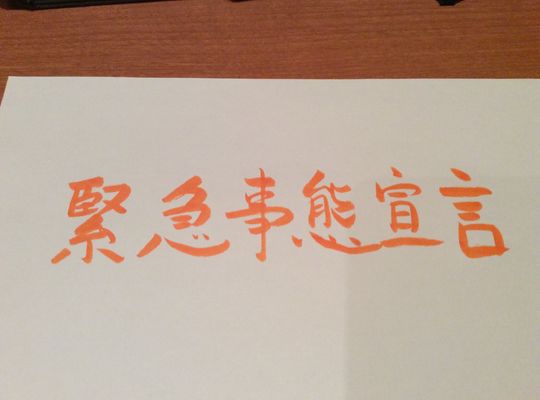 緊急事態宣言